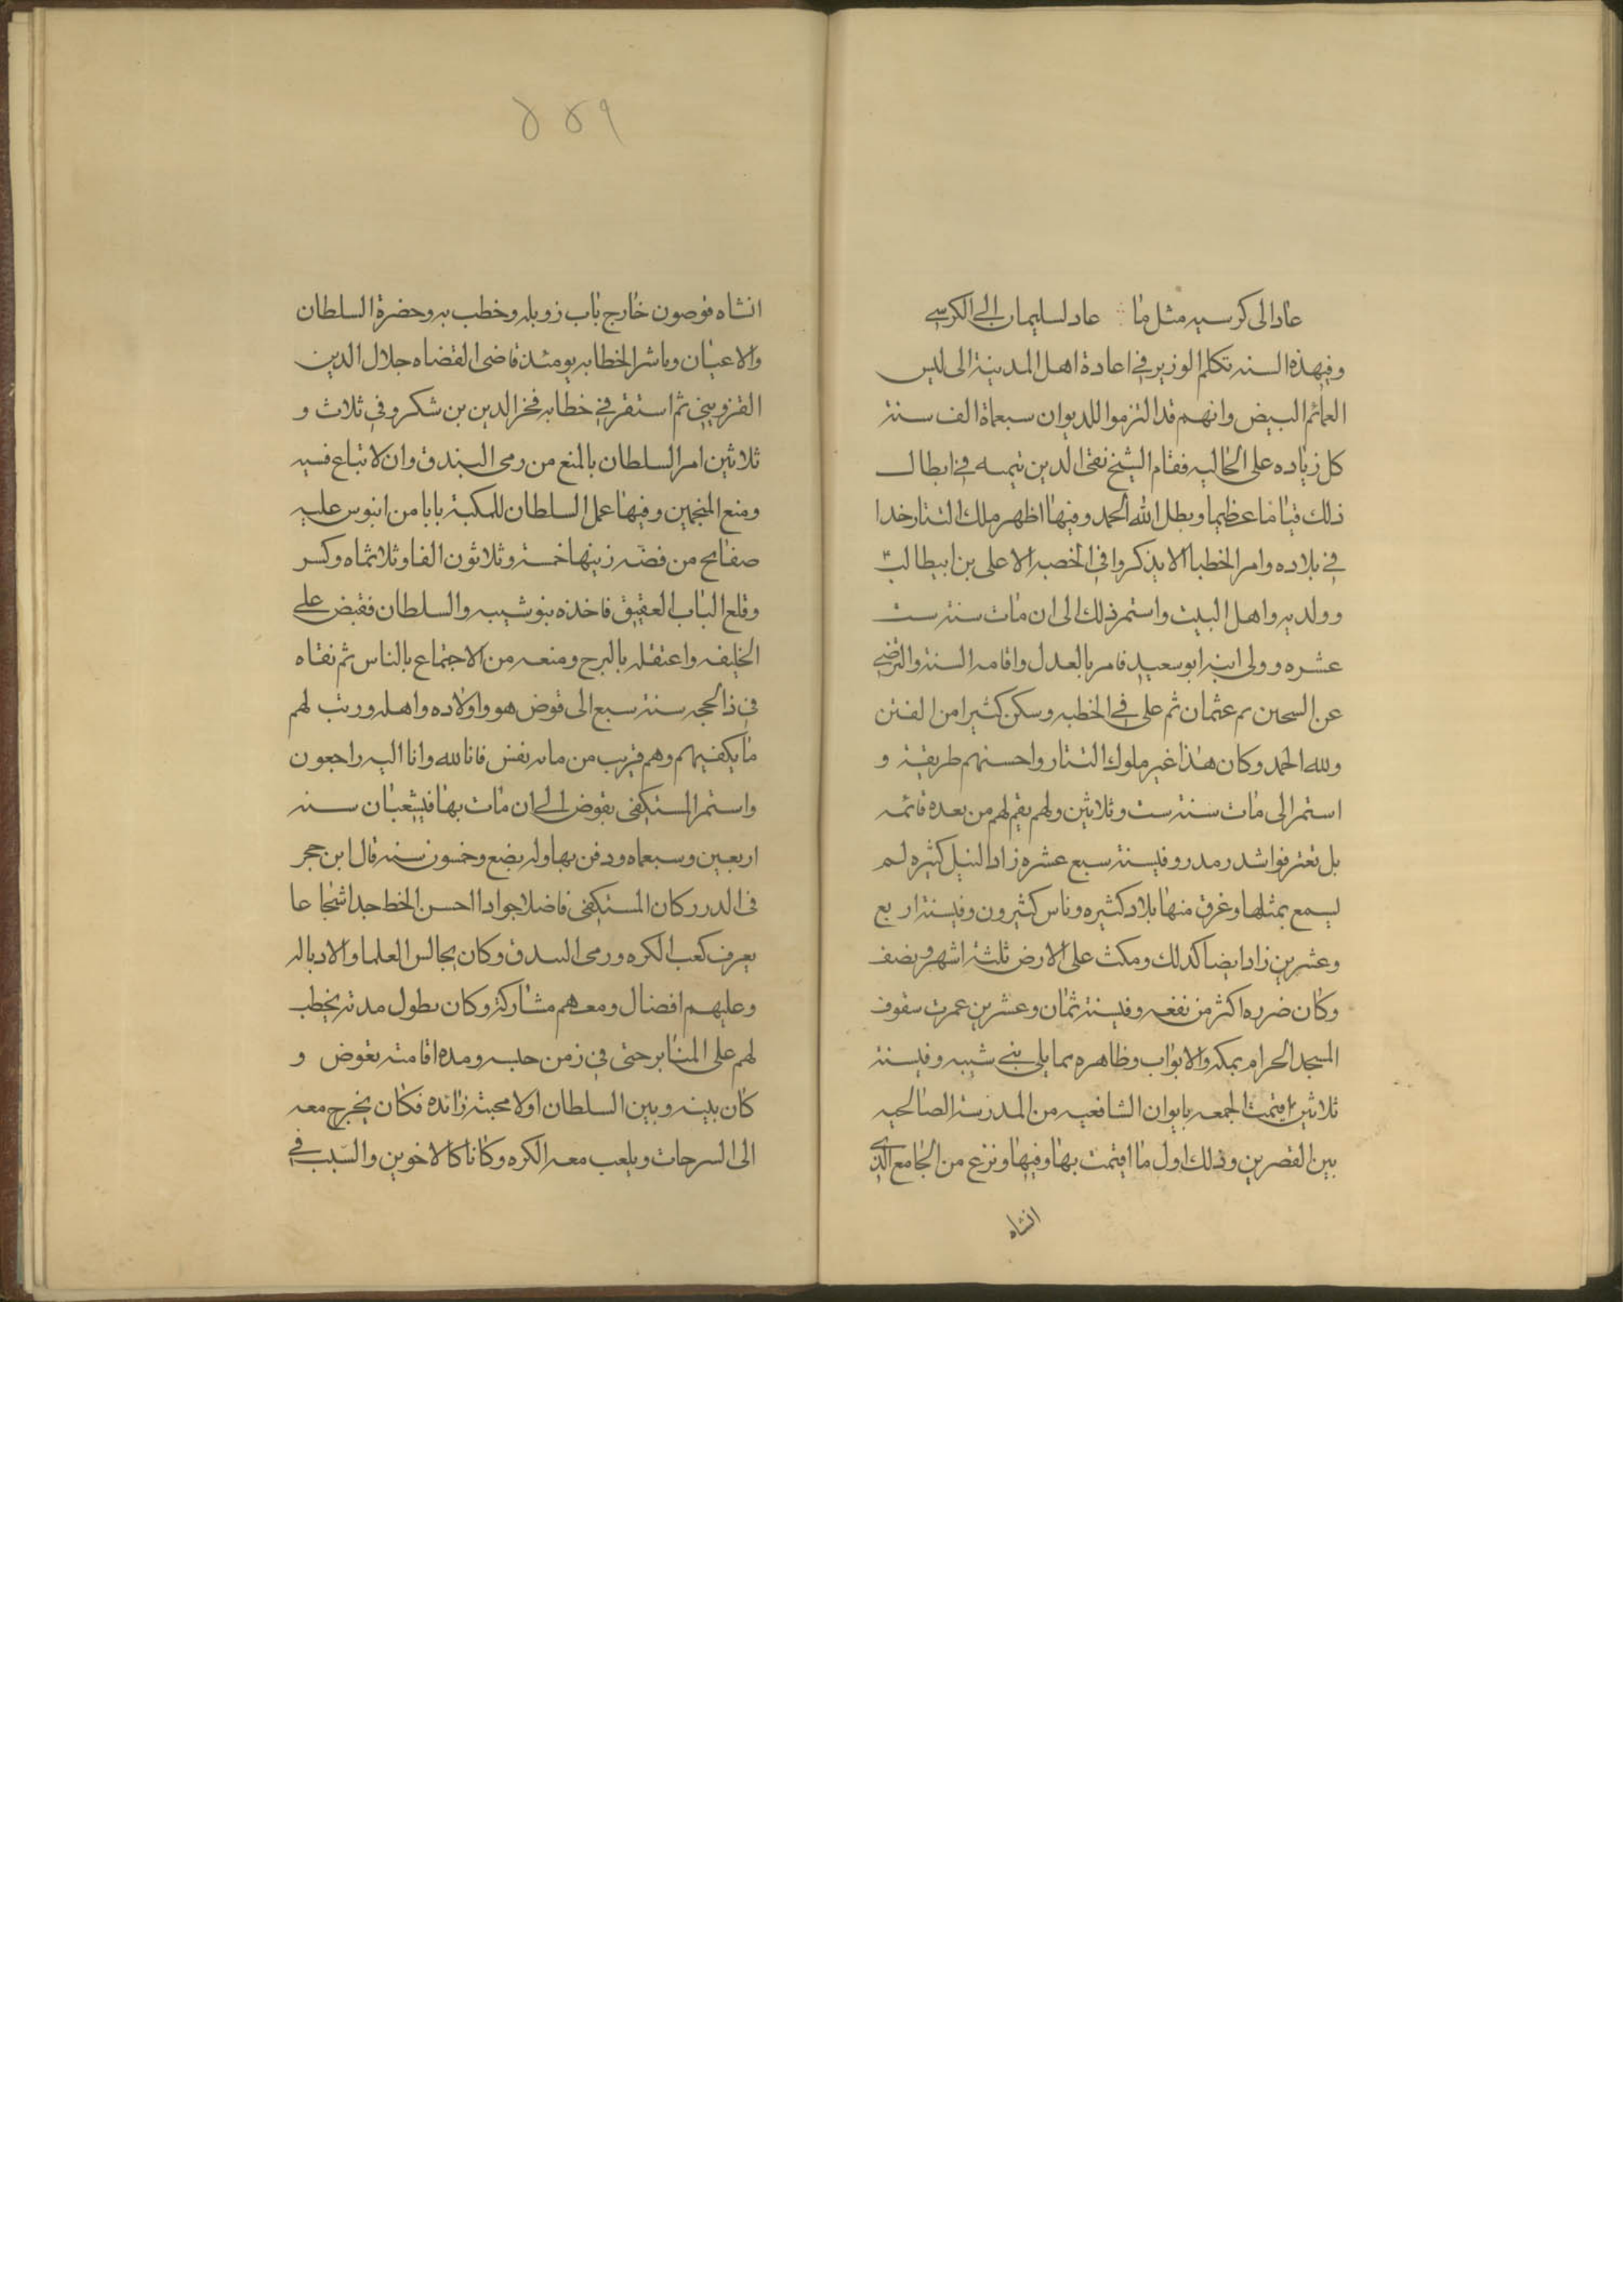 عاد الى كرسيه مثل ما ∴ عاد لسليمان الى الكرسي
وفي هذه السنه تكلم الوزير في اعادة اهل المدينة الى لبس
العمائم البيض وانهم قد التزموا للديوان سبعماة الف سنة
كل زياده على الحاليه فقام الشيخ تقى الدين تيميه في ابطال
ذلك قياما عظيما وبطل الله الحمد وفيها اظهر ملك التتار خدا
في بلاده وامر الخطبا الا يذكروا في الخصبه الا على بن ابيطالب
وولديه واهل البيت واستمر ذلك الى ان مات سنة ست
عشره وولى ابنه ابو سعيد فامر بالعدل واقامه السنة والترضي
عن السحين ثم عثمان ثم على في الخطبه وسكن كثيرا من الفتن
ولله الحمد وكان هذا غير ملوك التتار واحسنهم طريقة و
استمر الى مات سنة ست وثلاثين ولهم يقم لهم من بعده قائمه
بل تعترفوا شدر مدر وفيسنة سبع عشره زاد النيل كثيره لم
يسمع بمثلها وغرق منها بلاد كثيره وناس كثيرون وفيسنة اربع
وعشرين زاد ايضا كذلك ومكث على الارض ثلثة اشهر ونصف
وكان ضرره اكثر من نفعه وفيسنة ثمان وعشرين عمرت سقوف
المسجد الحرام بمكه والابواب وظاهره مما يلى بني شيبه وفيسنة
ثلاثين اقيمت الجمعه بايوان الشافعيه من المدرسة الصالحيه
بين القصرين وذلك اول ما اقيمت بها وفيها ونزع من الجامع الذي
انشاه
٤٤٩
انشاه قوصون خارج باب زويله وخطب به وحضرة السلطان
والاعيان وباشر الخطابه يومئذ قاضى القضاه جلال الدين
القزويني ثم استقر في خطابه فخر الدين بن شكر وفي ثلاث و
ثلاثين امر السلطان بالمنع من رمى البندق وان لا تباع قسيه
ومنع المنجمين وفيها عمل السلطان للكبة بابا من ابنوس عليه
صفايح من فضه زينها خمسة وثلاثون الفا وثلاثماه وكسر
وقلع الباب العقيق فاخذه بنو شيبه والسلطان فقبض على
الخليفه واعتقله بالبرج ومنعه من الاجتماع بالناس ثم نفاه
في ذالحجه سنة سبع الى قوض هو واولاده واهله ورتب لهم
ما يكفيهم وهم قريب من مايه نفس فانا لله وانا اليه راجعون
واستمر المستكفى بقوض الى ان مات بها فيشعبان سنه
اربعين وسبعماه ودفن بها وله بضع وخمسون سنه قال ابن حجر
فى الدرر كان المستكفى فاضلا جوادا احسن الخط جدا شجاعا
يعرف كعب الكره ورمى البندق وكان يجالس العلما والادبا له
وعليهم افضال ومعهم مشاركة وكان بطول مدته يخطب
لهم على المنابر حتى في زمن حبسه ومده اقامته بقوض و
كان بينه وبين السلطان اولا محبة زائده فكان يخرج معه
الى السرحات ويلعب معه الكره وكانا كالاخوين والسبب في